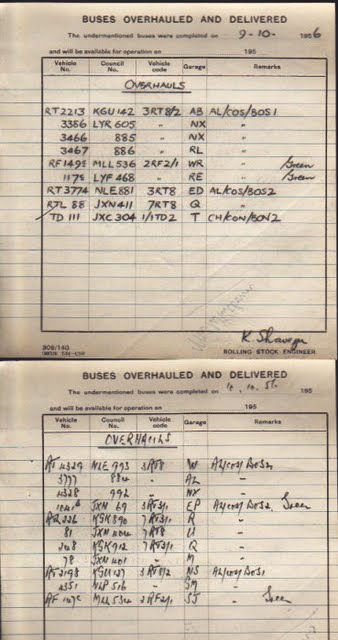 BUSES OVERHAULED AND DELIVERED
The undermentioned buses were completed on 9-10- 1956
and will be available for operation on 195
Vehicle No. Council No. Vehicle code Garage Remarks
OVERHAULS
RT2213 KGU142 3RT8/2 AB AL/COS/BOS1
3386 LYR 605 " NX "
3466 885 " NX "
3467 886 " RL "
RF149 MLL536 2RF2/1 WR " Green
117 LYF 468 " RE " Green
RT3774 NLE881 3RT8 ED AL/COS/BOS2
RTL 88 JXN411 7RT8 Q "
TD 111 JXC304 1/1TD2 T CH/CON/BOV2
308/140
ROLLING STOCK ENGINEER
BUSES OVERHAULED AND DELIVERED
The undermentioned buses were completed on 195
and will be available for operation on 195
Vehicle No. Council No. Vehicle code Garage Remarks
OVERHAULS
RT 4329 NLE 993 3RT8 W AL/COS/BOS2
3777 884 " AL "
4328 992 " NX "
JXN 69 EP AL/COS/BOS2 Green
KGK890 R "
81 JXN404 7RT8 U "
KGK912 Q "
78 JXN401 " M "
RT2198 KGU127 3RT8/2 NS AL/COS/BOS1
4351 NLP 516 " SM "
RF MLL534 2RF2/1 SJ " Green